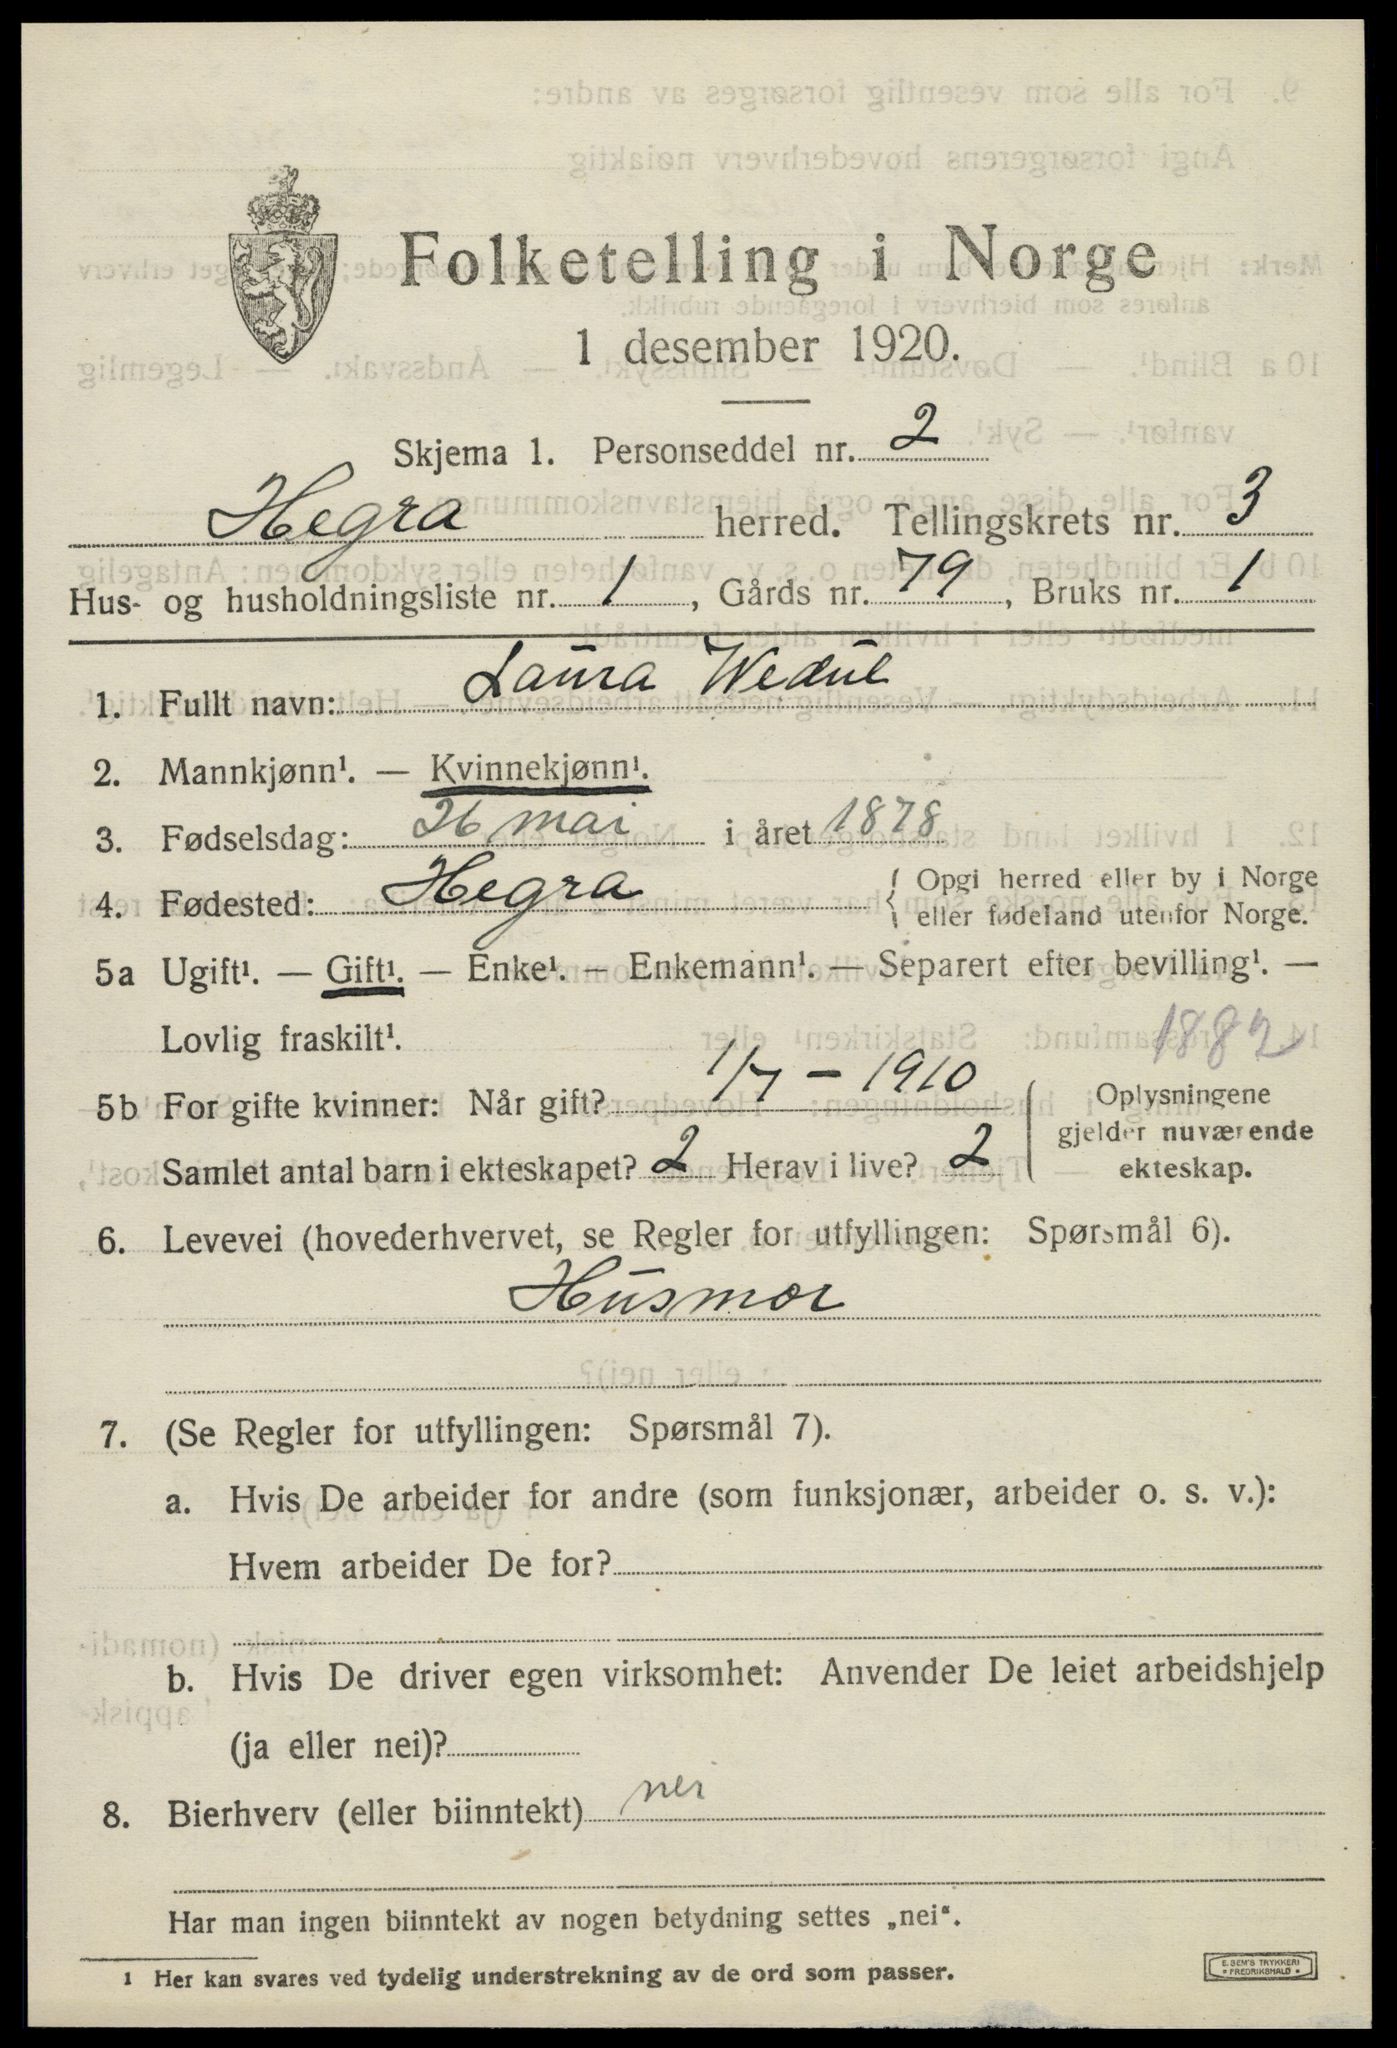 Folketelling i Norge
1 desember 1920.
Skjema 1. Personseddel nr. 2
Hegra herred. Tellingskrets nr. 3
Hus- og husholdningsliste nr. 1, Gårds nr. 79, Bruks nr. 1
1. Fullt navn: Laura Wedul
2. Mannkjønn¹. — Kvinnekjønn¹.
3. Fødselsdag: 26 mai i året 1878
4. Fødested: Hegra { Opgi herred eller by i Norge
eller fødeland utenfor Norge.
5a Ugift¹. — Gift¹. — Enke¹. — Enkemann¹. — Separert efter bevilling¹. —
Lovlig fraskilt¹.
1882
5b For gifte kvinner: Når gift? 1/7 - 1910
Samlet antal barn i ekteskapet? 2 Herav i live? 2
Oplysningene
gjelder nuværende
ekteskap.
6. Levevei (hovederhvervet, se Regler for utfyllingen: Spørsmål 6).
Husmor
7. (Se Regler for utfyllingen: Spørsmål 7).
a. Hvis De arbeider for andre (som funksjonær, arbeider o. s. v.):
Hvem arbeider De for?
b. Hvis De driver egen virksomhet: Anvender De leiet arbeidshjelp
(ja eller nei)?
8. Bierhverv (eller biinntekt) nei
Har man ingen biinntekt av nogen betydning settes „nei“.
1 Her kan svares ved tydelig understrekning av de ord som passer.
E. SEM'S TRYKKERI
FREDRIKSHALD